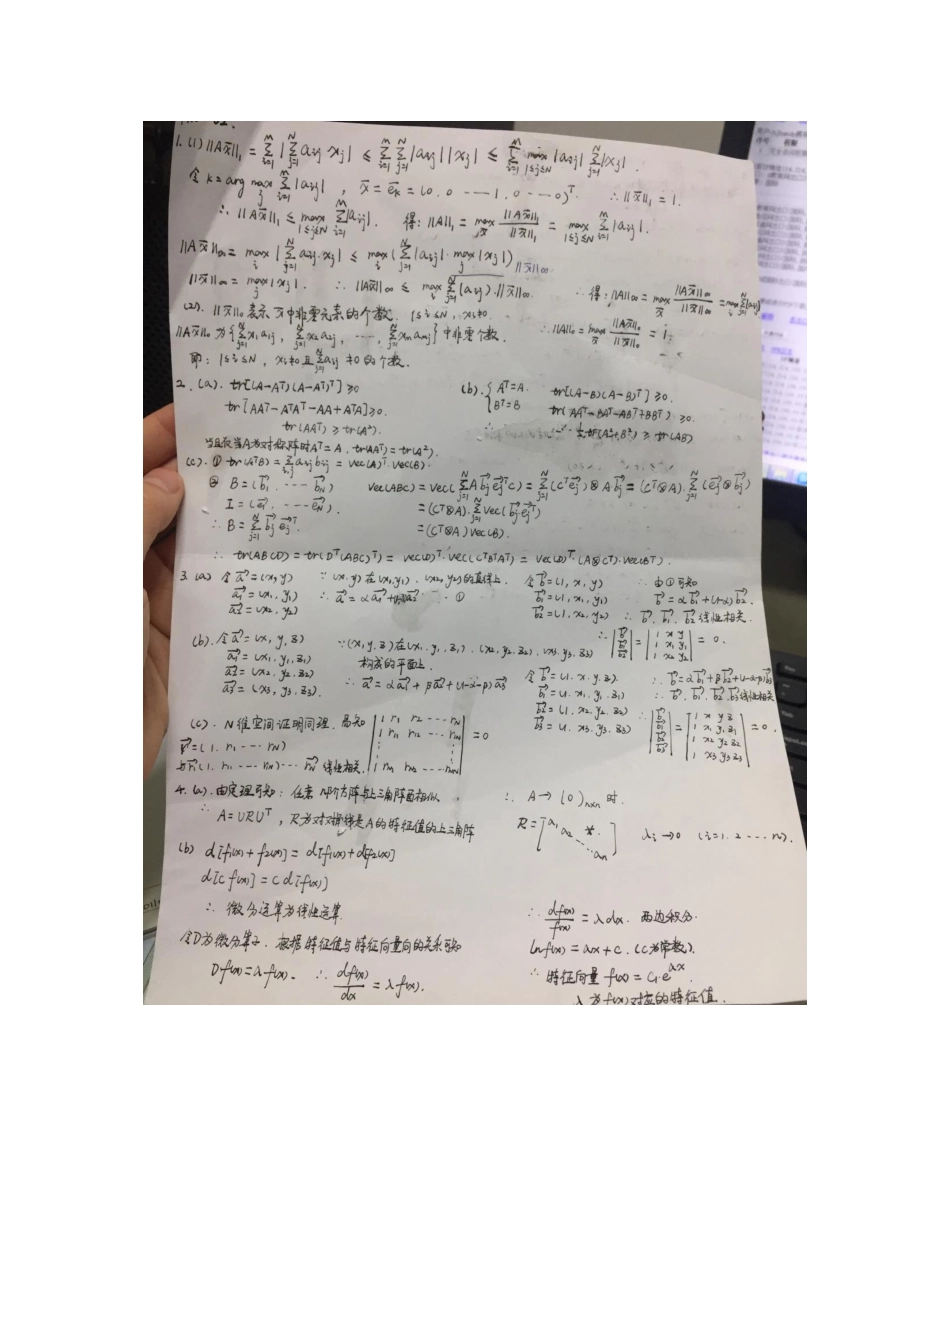 1. (1) ||Ax⃗||₁ = Σ_{i=1}^{M} |Σ_{j=1}^{N} a_ij x_j| ≤ Σ_{i=1}^{M} Σ_{j=1}^{N} |a_ij||x_j| ≤ Σ_{i=1}^{M} max_{1≤j≤N} |a_ij| Σ_{j=1}^{N} |x_j|.
令 k = arg max_j Σ_{i=1}^{M} |a_ij| , x⃗ = e⃗_k = (0, 0 ---- 1, 0 --- 0)^T. ∴ ||x⃗||₁ = 1.
∴ ||Ax⃗||₁ ≤ max_{1≤j≤N} Σ_{i=1}^{M} |a_ij|. 得: ||A||₁ = max_{x⃗} ||Ax⃗||₁ / ||x⃗||₁ = max_{1≤j≤N} Σ_{i=1}^{M} |a_ij|.
||Ax⃗||∞ = max_i |Σ_{j=1}^{N} a_ij x_j| ≤ max_i (Σ_{j=1}^{N} |a_ij| · max_j |x_j|) ||x⃗||∞
||x⃗||∞ = max_j |x_j|. ∴ ||Ax⃗||∞ ≤ max_i Σ_{j=1}^{N} |a_ij| · ||x⃗||∞. ∴ 得: ||A||∞ = max_{x⃗} ||Ax⃗||∞ / ||x⃗||∞ = max_i Σ_{j=1}^{N} |a_ij|
(2). ||x⃗||₀ 表示 x⃗ 中非零元素的个数. 1≤i≤N, x_i≠0.
||Ax⃗||₀ 为 {Σ x₁a_1j, Σ x₂a_2j, ---, Σ x_n a_nj} 中非零个数. ∴ ||A||₀ = max_{x⃗} ||Ax⃗||₀ / ||x⃗||₀ =
即: 1≤i≤N, x_i≠0 且 Σ a_ij ≠0 的个数.
2. (a). tr[(A-A^T)(A-A^T)^T] ≥0 (b). { A^T=A. B^T=B tr[(A-B)(A-B)^T] ≥0.
tr[AA^T - A^TA^T - AA + A^TA] ≥0. tr(AA^T-BA^T-AB^T+BB^T) ≥0.
tr(AA^T) ≥ tr(A²). ∴ ½tr(A²+B²) ≥ tr(AB)
当且仅当A为对称阵时A^T=A, tr(AA^T)=tr(A²).
(c). ① tr(A^TB) = Σ_{i,j} a_ij b_ij = vec(A)^T · vec(B).
② B = (b₁⃗, --- b_N⃗) vec(ABC) = vec(Σ_{j=1}^{N} A b_j⃗ e_j⃗^T C) = Σ_{j=1}^{N} (C^T e_j⃗) ⊗ A b_j⃗ = (C^T⊗A) · Σ_{j=1}^{N} (e_j⃗ ⊗ b_j⃗)
I = (e₁⃗, --- e_N⃗). = (C^T⊗A) · Σ_{j=1}^{N} vec(b_j⃗ e_j⃗^T)
∴ B = Σ_{j=1}^{N} b_j⃗ e_j⃗^T. = (C^T⊗A) vec(B).
∴ tr(ABCD) = tr(D^T(ABC)^T) = vec(D)^T · vec(C^TB^TA^T) = vec(D)^T · (A⊗C^T) · vec(B^T).
3. (a) 令 a⃗ = (x, y) ∵ (x, y) 在 (x₁, y₁), (x₂, y₂) 的直线上. 令 b⃗ = (1, x, y) ∴ 由①可知
a₁⃗ = (x₁, y₁) ∴ a⃗ = αa₁⃗ + (1-α)a₂⃗ ① b₁⃗ = (1, x₁, y₁) b⃗ = αb₁⃗ + (1-α)b₂⃗.
a₂⃗ = (x₂, y₂) b₂⃗ = (1, x₂, y₂) ∴ b⃗, b₁⃗, b₂⃗ 线性相关.
∴ |b⃗ b₁⃗ b₂⃗| = |1 x y; 1 x₁ y₁; 1 x₂ y₂| = 0.
(b). 令 a⃗ = (x, y, z) ∵ (x, y, z) 在 (x₁, y₁, z₁), (x₂, y₂, z₂), (x₃, y₃, z₃)
a₁⃗ = (x₁, y₁, z₁) 构成的平面上. 令 b⃗ = (1, x, y, z). ∴ b⃗ = αb₁⃗ + βb₂⃗ + (1-α-β)b₃⃗
a₂⃗ = (x₂, y₂, z₂) ∴ a⃗ = αa₁⃗ + βa₂⃗ + (1-α-β)a₃⃗ b₁⃗ = (1, x₁, y₁, z₁) ∴ b⃗, b₁⃗, b₂⃗, b₃⃗ 线性相关
a₃⃗ = (x₃, y₃, z₃). b₂⃗ = (1, x₂, y₂, z₂)
b₃⃗ = (1, x₃, y₃, z₃) ∴ |b⃗ b₁⃗ b₂⃗ b₃⃗| = |1 x y z; 1 x₁ y₁ z₁; 1 x₂ y₂ z₂; 1 x₃ y₃ z₃| = 0.
(c). N维空间证明同理. 易知 |1 r₁ r₂ ---- r_N; 1 r₁₁ r₁₂ --- r_1N; ⋮ ⋮; 1 r_N1 r_N2 --- r_NN| = 0
r⃗ = (1, r₁ --- r_N)
与 r₁⃗ (1, r₁₁ --- r_1N) --- r_N⃗ 线性相关.
4. (a). 由定理可知: 任意 N阶方阵与上三角阵酉相似. ∴ A → (0)_{n×n} 时.
∴ A = URU^T, R为对角线是A的特征值的上三角阵 R = [a₁ a₂ * ⋱ a_n] λ_i → 0 (i=1, 2 --- n).
(b) d[f₁(x) + f₂(x)] = d[f₁(x)] + d[f₂(x)]
d[c f(x)] = c d[f(x)]
∴ 微分运算为线性运算. ∴ df(x)/f(x) = λdx. 两边积分.
令D为微分算子. 根据特征值与特征向量间的关系可知 ln f(x) = λx + c. (c为常数).
Df(x) = λf(x). ∴ df(x)/dx = λf(x). ∴ 特征向量 f(x) = c₁·e^{λx}.
λ 为 f(x) 对应的特征值.